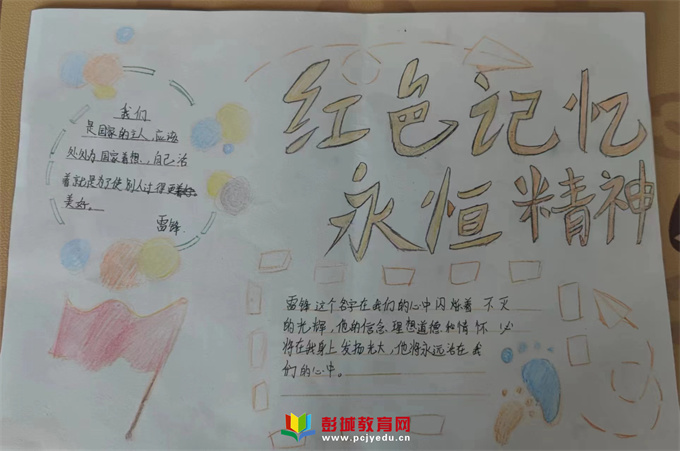 红色记忆
永恒精神
我们
是国家的主人,应该
处处为国家着想,自己活
着就是为了使别人过得更
美好。
雷锋
雷锋这个名字在我们的心中闪烁着不灭
的光辉,他的信念理想道德和情怀必
将在我身上发扬光大,他将永远活在我
们的心中。
彭城教育网
www.pcjyedu.cn